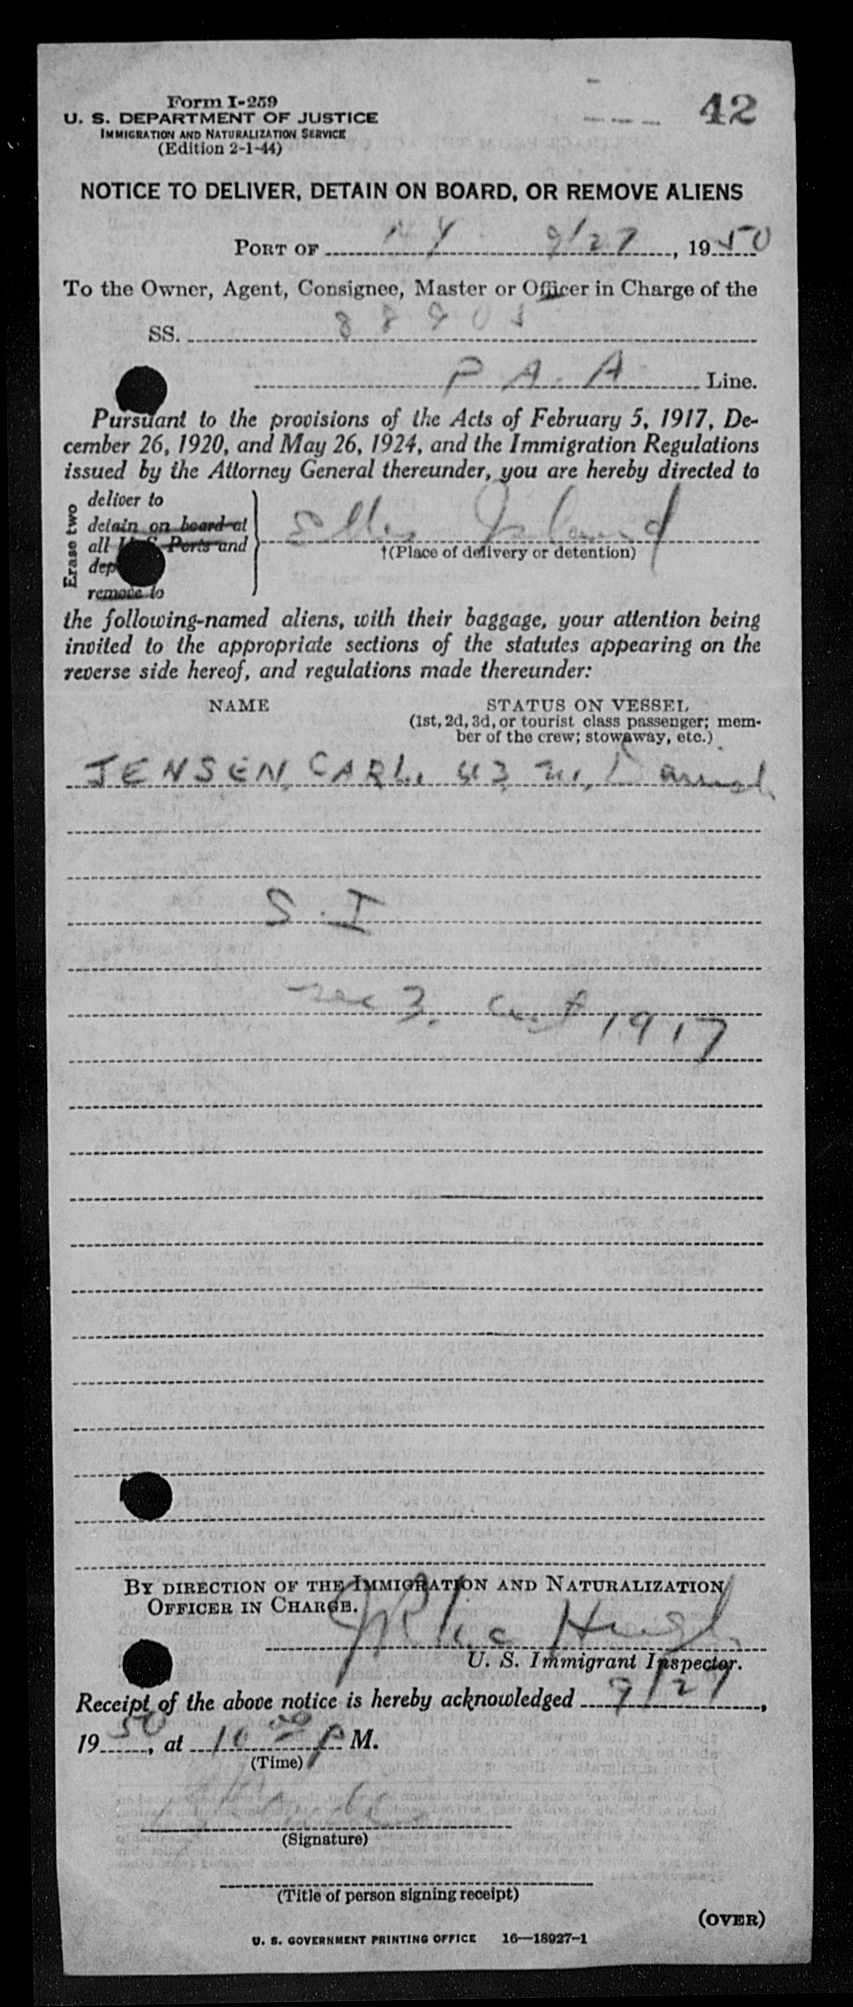 Form I-259
42
U. S. DEPARTMENT OF JUSTICE
IMMIGRATION AND NATURALIZATION SERVICE
(Edition 2-1-44)
NOTICE TO DELIVER, DETAIN ON BOARD, OR REMOVE ALIENS
PORT OF NY 9/27, 1950
To the Owner, Agent, Consignee, Master or Officer in Charge of the
SS. 88903
P.A.A. Line.
Pursuant to the provisions of the Acts of February 5, 1917, De-
cember 26, 1920, and May 26, 1924, and the Immigration Regulations
issued by the Attorney General thereunder, you are hereby directed to
Erase two
deliver to
detain on board at
all U.S. Ports and
dep
remove to
Ellis Island
†(Place of delivery or detention)
the following-named aliens, with their baggage, your attention being
invited to the appropriate sections of the statutes appearing on the
reverse side hereof, and regulations made thereunder:
NAME STATUS ON VESSEL
(1st, 2d, 3d, or tourist class passenger; mem-
ber of the crew; stowaway, etc.)
JENSEN, CARL. 43 m, Danish
S.I
Sec 3. Act 1917
BY DIRECTION OF THE IMMIGRATION AND NATURALIZATION
OFFICER IN CHARGE.
U. S. Immigrant Inspector.
Receipt of the above notice is hereby acknowledged 9/27,
1950, at 10 00 P M.
(Time)
(Signature)
(Title of person signing receipt)
(OVER)
U. S. GOVERNMENT PRINTING OFFICE 16—18927-1